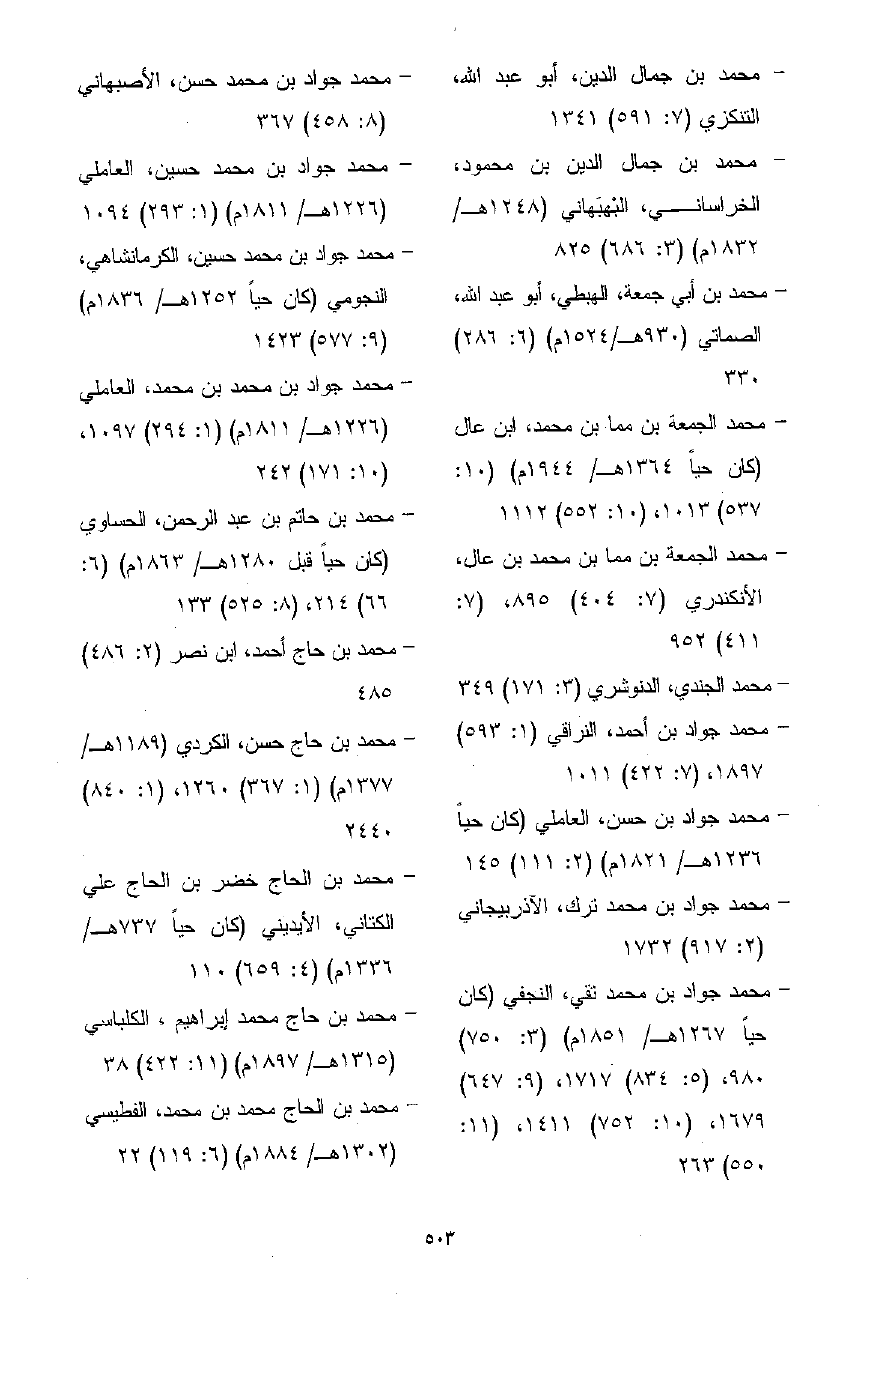 – محمد بن جمال الدين، أبو عبد الله،
التنكزي (٧: ٥٩١) ١٣٤١
– محمد بن جمال الدين بن محمود،
الخراساني، البْهبَهاني (١٢٤٨هـ/
١٨٣٢م) (٣: ٦٨٦) ٨٢٥
– محمد بن أبي جمعة، الهبطي، أبو عبد الله،
الصماتي (٩٣٠هـ/١٥٢٤م) (٦: ٢٨٦)
٣٣٠
– محمد الجمعة بن مما بن محمد، ابن عال
(كان حياً ١٣٦٤هـ/ ١٩٤٤م) (١٠:
٥٣٧) ١٠١٣، (١٠: ٥٥٢) ١١١٢
– محمد الجمعة بن مما بن محمد بن عال،
الأنكندري (٧: ٤٠٤) ٨٩٥، (٧:
٤١١) ٩٥٢
– محمد الجندي، الدنوشري (٣: ١٧١) ٣٤٩
– محمد جواد بن أحمد، النراقي (١: ٥٩٣)
١٨٩٧، (٧: ٤٢٢) ١٠١١
– محمد جواد بن حسن، العاملي (كان حياً
١٢٣٦هـ/ ١٨٢١م) (٢: ١١١) ١٤٥
– محمد جواد بن محمد ترك، الآذربيجاني
(٢: ٩١٧) ١٧٣٢
– محمد جواد بن محمد تقي، النجفي (كان
حياً ١٢٦٧هـ/ ١٨٥١م) (٣: ٧٥٠)
٩٨٠، (٥: ٨٣٤) ١٧١٧، (٩: ٦٤٧)
١٦٧٩، (١٠: ٧٥٢) ١٤١١، (١١:
٥٥٠) ٢٦٣
– محمد جواد بن محمد حسن، الأصبهاني
(٨: ٤٥٨) ٣٦٧
– محمد جواد بن محمد حسين، العاملي
(١٢٢٦هـ/ ١٨١١م) (١: ٢٩٣) ١٠٩٤
– محمد جواد بن محمد حسين، الكرمانشاهي،
النجومي (كان حياً ١٢٥٢هـ/ ١٨٣٦م)
(٩: ٥٧٧) ١٤٢٣
– محمد جواد بن محمد بن محمد، العاملي
(١٢٢٦هـ/ ١٨١١م) (١: ٢٩٤) ١٠٩٧،
(١٠: ١٧١) ٢٤٢
– محمد بن حاتم بن عبد الرحمن، الحساوي
(كان حياً قبل ١٢٨٠هـ/ ١٨٦٣م) (٦:
٦٦) ٢١٤، (٨: ٥٢٥) ١٣٣
– محمد بن حاج أحمد، ابن نصر (٢: ٤٨٦)
٤٨٥
– محمد بن حاج حسن، الكردي (١١٨٩هـ/
١٣٧٧م) (١: ٣٦٧) ١٢٦٠، (١: ٨٤٠)
٢٤٤٠
– محمد بن الحاج خضر بن الحاج علي
الكتاني، الأيديني (كان حياً ٧٣٧هـ/
١٣٣٦م) (٤: ٦٥٩) ١١٠
– محمد بن حاج محمد إبراهيم ، الكلباسي
(١٣١٥هـ/ ١٨٩٧م) (١١: ٤٢٢) ٣٨
– محمد بن الحاج محمد بن محمد، الفطيسي
(١٣٠٢هـ/ ١٨٨٤م) (٦: ١١٩) ٢٢
٥٠٣